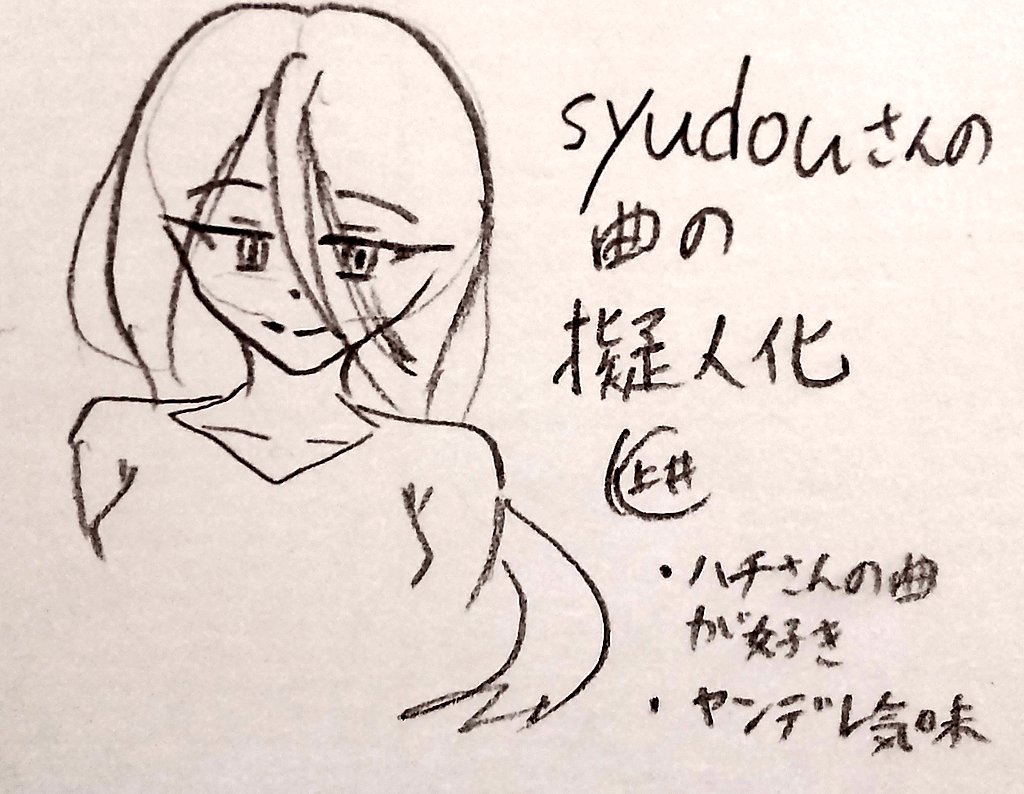 syudouさんの
曲の
擬人化
上井
・ハチさんの曲
が好き
・ヤンデレ気味